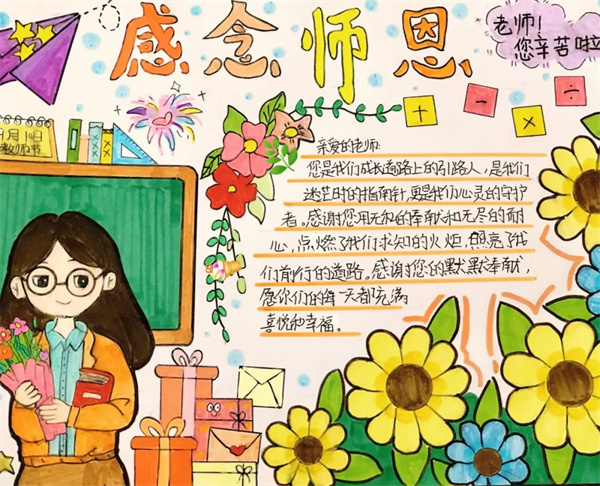 感念师恩
老师!
您辛苦啦
+ - × ÷
9月10日
教师节
亲爱的老师:
您是我们成长道路上的引路人,是我们
迷茫时的指南针,更是我们心灵的守护
者。感谢您用无私的奉献和无尽的耐
心,点燃了我们求知的火炬,照亮了我
们前行的道路。感谢您的默默奉献,
愿你们的每一天都充满
喜悦和幸福。